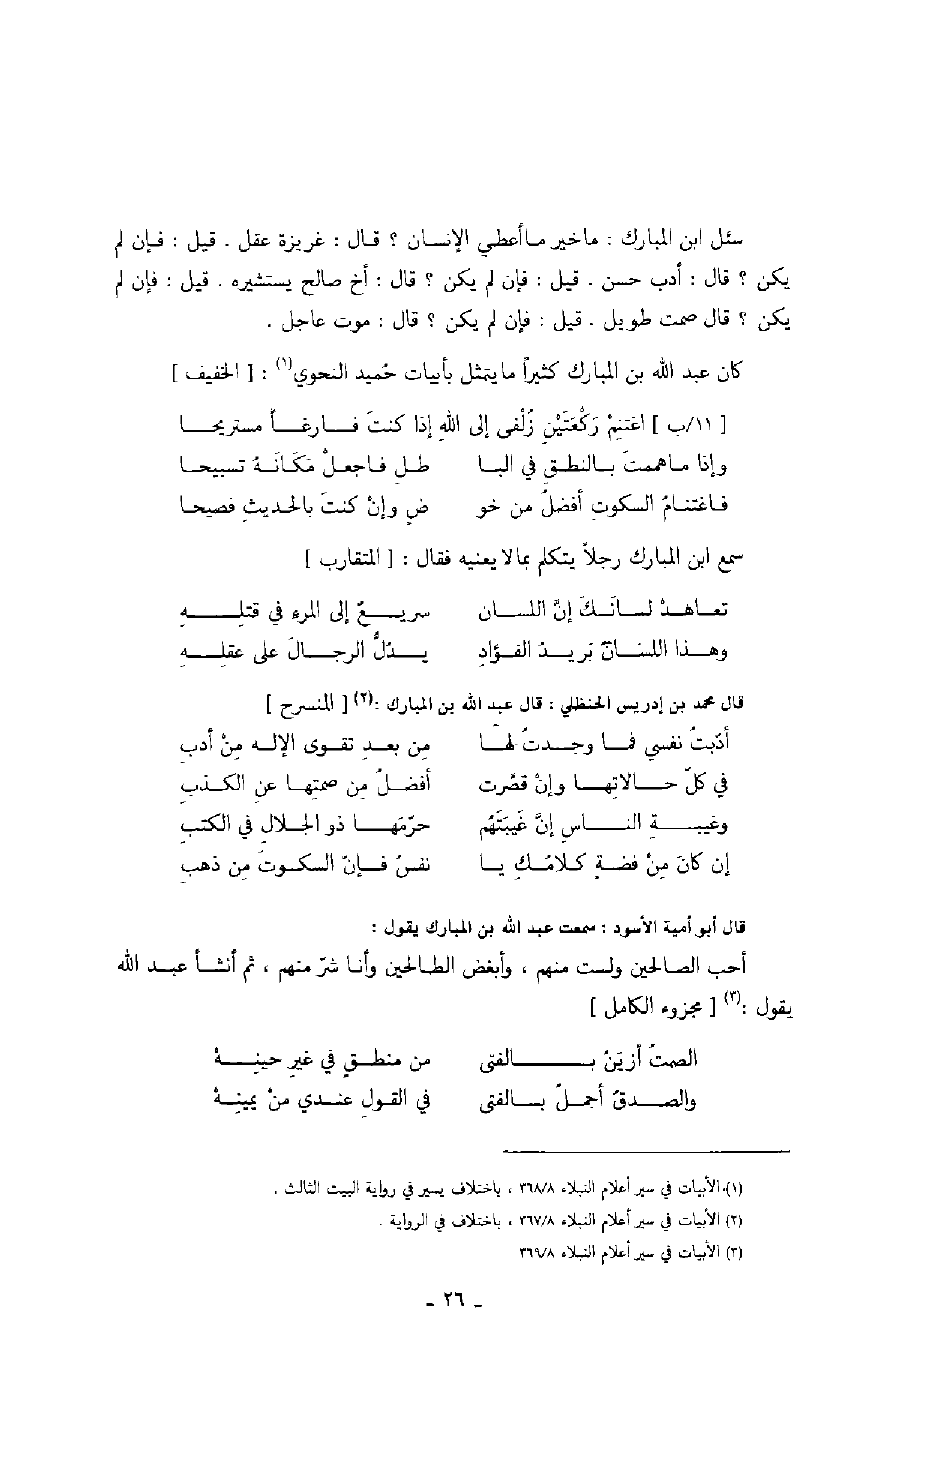 سئل ابن المبارك : ماخير ماأعطي الإنسان ؟ قال : غريزة عقل . قيل : فإن لم
يكن ؟ قال : أدب حسن . قيل : فإن لم يكن ؟ قال : أخ صالح يستشيره . قيل : فإن لم
يكن ؟ قال صمت طويل . قيل : فإن لم يكن ؟ قال : موت عاجل .
كان عبد الله بن المبارك كثيراً مايتمثل بأبيات حُميد النحوي(١) : [ الخفيف ]
[ ١١/ب ] اغتنمْ رَكْعَتَيْنِ زُلْفى إلى اللهِ إذا كنتَ فارغاً مستريحا
وإذا ماهممتَ بالنطقِ في البا طلِ فاجعلْ مَكَانَهُ تسبيحا
فاغتنامُ السكوتِ أفضلُ من خو ضٍ وإنْ كنتَ بالحديثِ فصيحا
سمع ابن المبارك رجلاً يتكلم بمالا يعنيه فقال : [ المتقارب ]
تعاهدْ لسانَكَ إنَّ اللسان سريعٌ إلى المرءِ في قتلِهِ
وهذا اللسَانُ بَريدُ الفؤادِ يدُلُّ الرجالَ على عقلِهِ
قال محمد بن إدريس الحنظلي : قال عبد الله بن المبارك :(٢) [ المنسرح ]
أدّبتُ نفسي فما وجدتُ لها من بعدِ تقوى الإلهِ مِنْ أدبِ
في كلّ حالاتِها وإنْ قصُرت أفضلُ من صمتِها عنِ الكذبِ
وغيبةِ الناسِ إنَّ غَيبَتَهُم حرّمَها ذو الجلالِ في الكتبِ
إن كانَ مِنْ فضةٍ كلامُكِ يا نفسُ فإنّ السكوتَ من ذهبِ
قال أبو أمية الأسود : سمعت عبد الله بن المبارك يقول :
أحب الصالحين ولست منهم ، وأبغض الطالحين وأنا شرّ منهم ، ثم أنشأ عبد الله
يقول :(٣) [ مجزوء الكامل ]
الصمتُ أزيَنُ بالفتى من منطقٍ في غيرِ حينِهْ
والصدقُ أجملُ بالفتى في القولِ عندي مِنْ يمينِهْ
(١) الأبيات في سير أعلام النبلاء ٣٦٨/٨ ، باختلاف يسير في رواية البيت الثالث .
(٢) الأبيات في سير أعلام النبلاء ٣٦٧/٨ ، باختلاف في الرواية .
(٣) الأبيات في سير أعلام النبلاء ٣٦٩/٨
- ٢٦ -